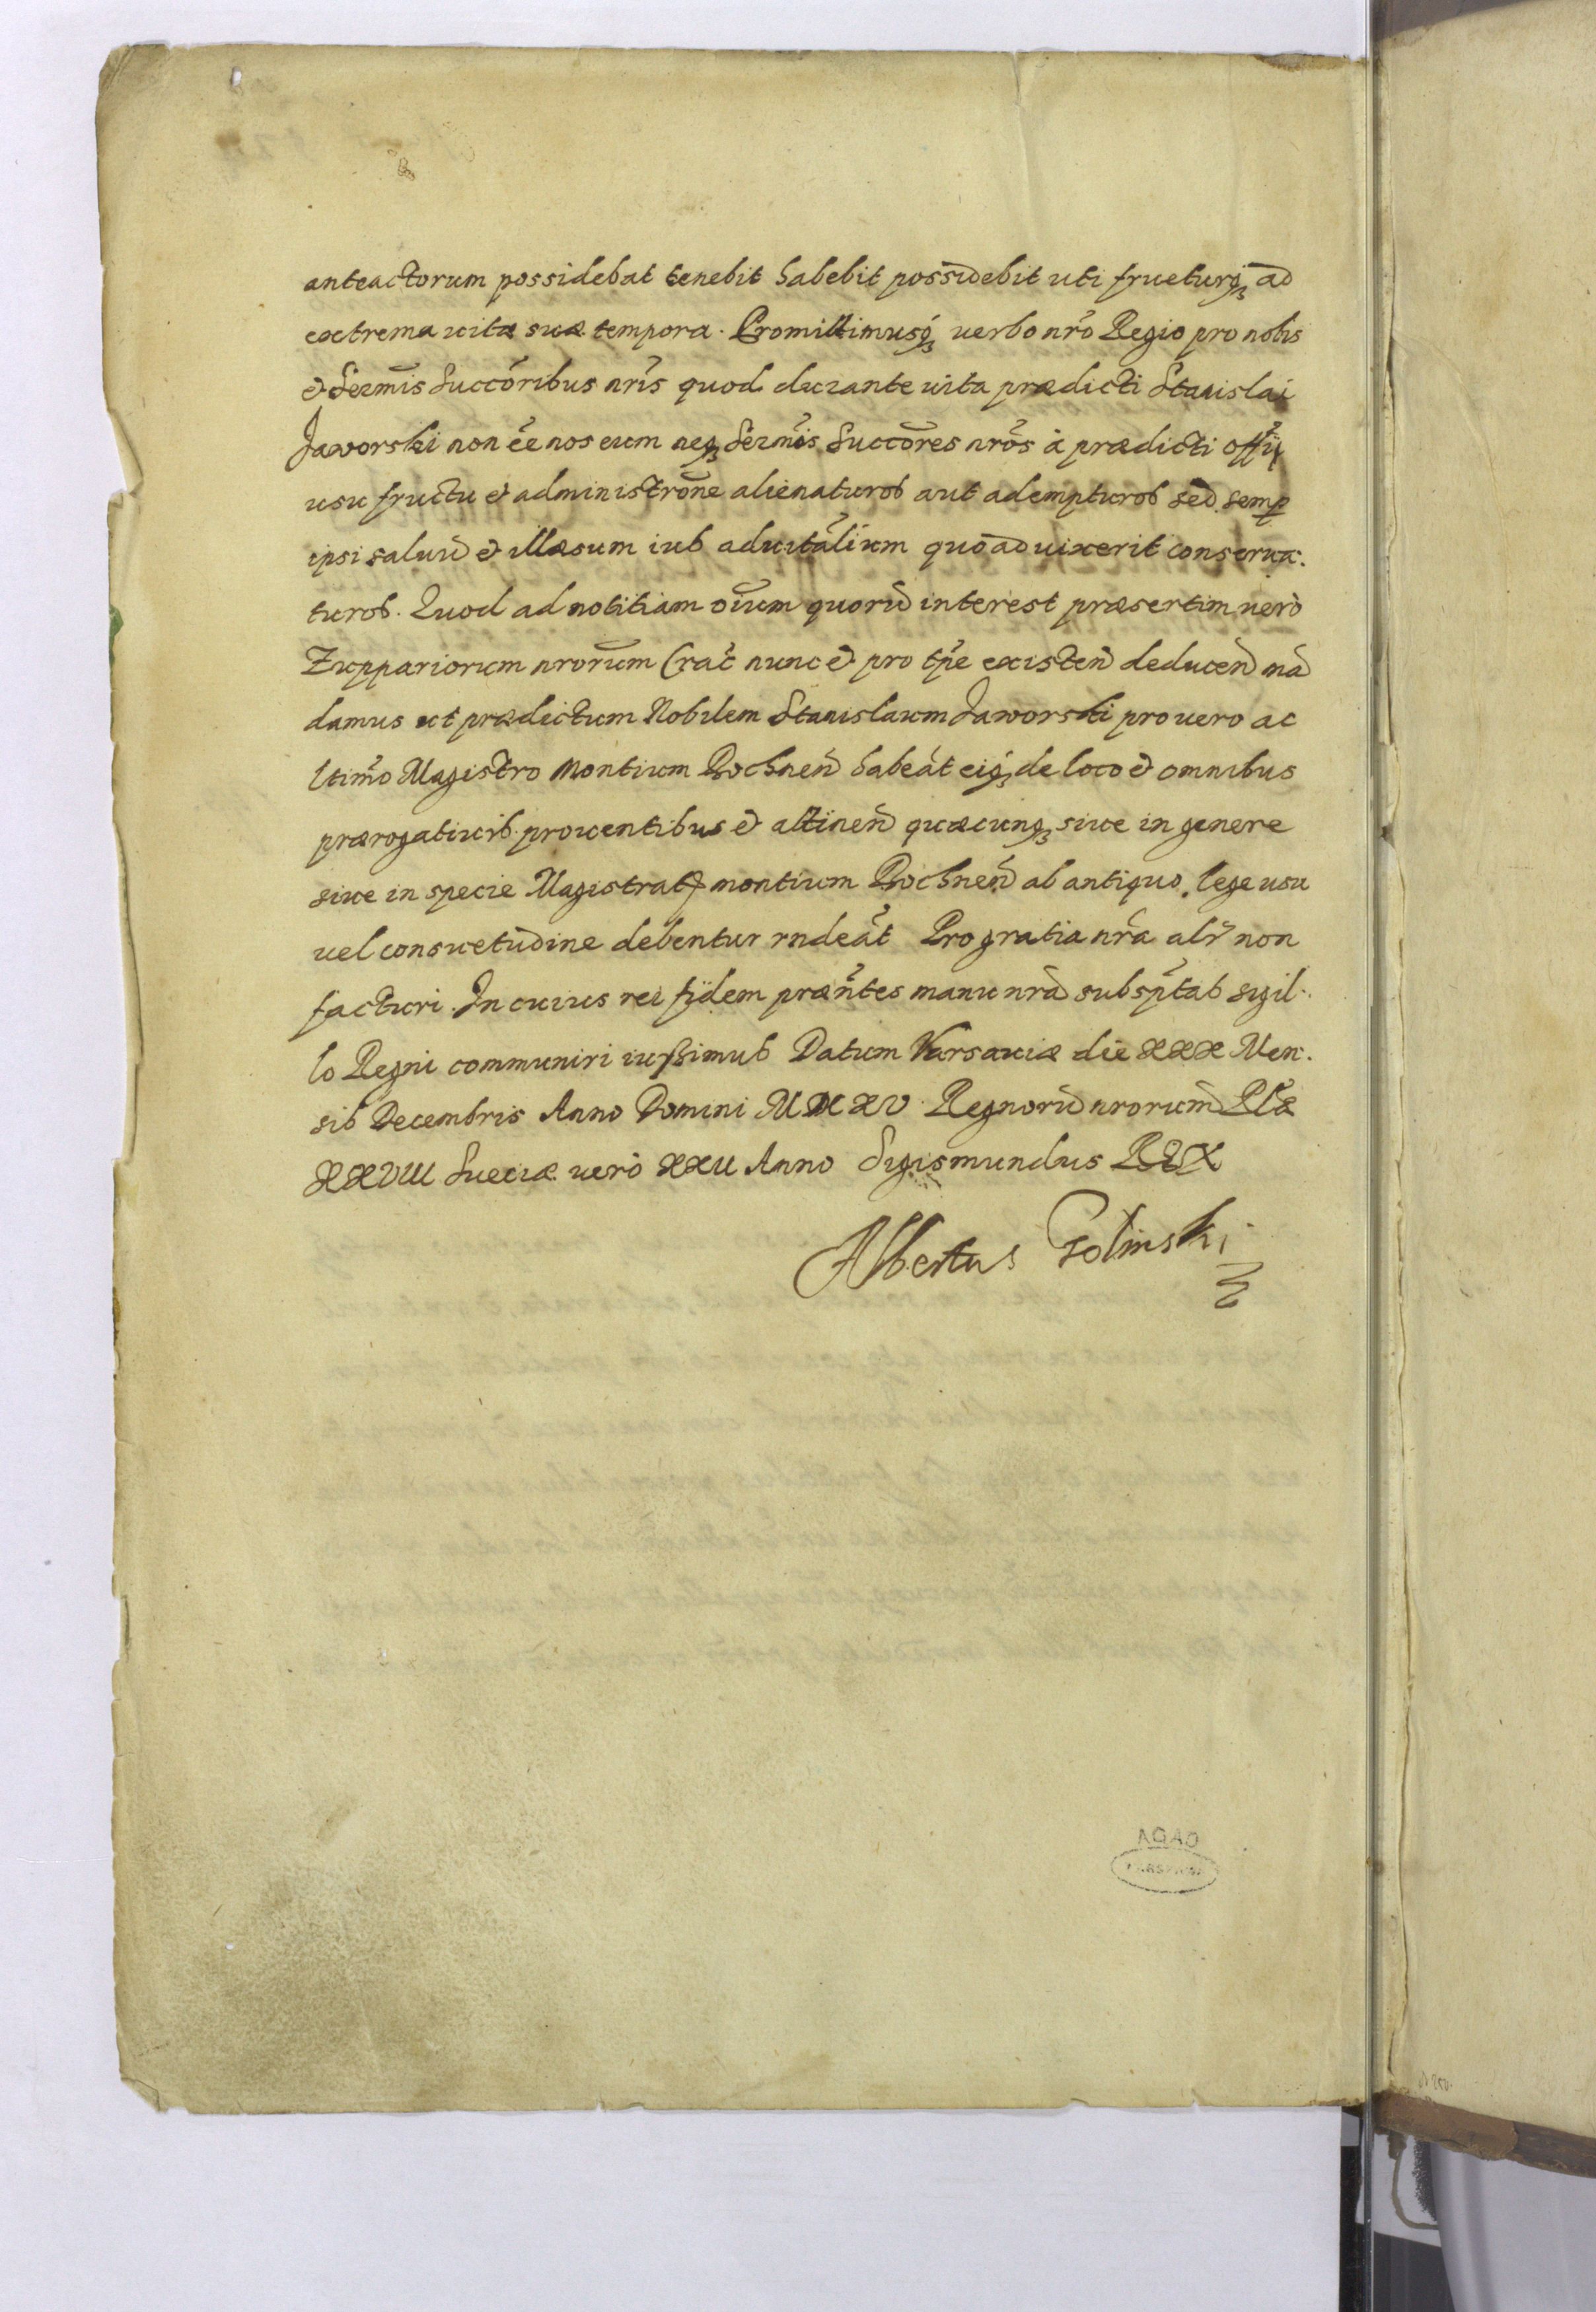 anteactorum possidebat tenebit habebit possidebit uti frueturq́ꝫ ad
extrema vitæ suæ tempora. Promittimusq́ꝫ uerbo nr̃o Regio pro nobis
et Sermis Succõribus nr̃is quod durante uita prædicti Stanislai
Jaworski non ẽe nos eum neqꝫ Serm̃os Succõres nr̃os à prædicti offĩi
usu fructu et administrõne alienaturos aut adempturos sed semp
ipsi saluũ et illæsum ius aduitãlium quoad uixerit conserua:
turos. Quod ad notitiam oĩum quorũ interest præsertim uerò
Zuppariorum nrorum Crac̃ nunc et pro tp̃e existeñ deduceñ mã
damus ut prædictum Nobilem Stanislaum Jaworski pro uero ac
ltimo Magistro Montium Bochneñ habeãt eiq́ꝫ de loco et omnibus
prærogatiuis prouentibus et attineñ quæcunqꝫ siue in genere
siue in specie Magistratꝯ montium Bochneñ ab antiquo, lege usu
uel consuetudine debentur rndeãt Pro gratia nr̃a alr̃ non
facturi. In cuius rei fidem præñtes manu nr̃a subsp̃tas sigil:
lo Regni communiri iussimus Datum Varsauiæ die XXX Men:
sis Decembris Anno Domini MDCXV Regnorũ nrorum Pl̃æ
XXVIII Sueciæ uerò XXII Anno Sigismundus REX
Albertus Golinski
AGAD
WARSZAWA